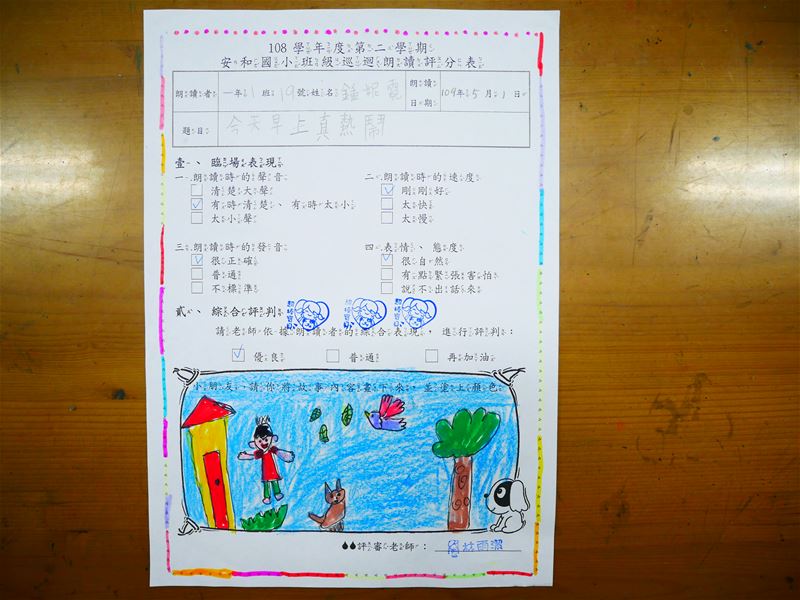 108 學年度第二學期
安和國小班級巡迴朗讀評分表
朗讀者 一年1班19號姓名 鍾妮霓 朗讀日期 109年5月1日
題目 今天早上真熱鬧
壹、臨場表現
一.朗讀時的聲音 二.朗讀時的速度
清楚大聲 剛剛好
有時清楚、有時太小 太快
太小聲 太慢
三.朗讀時的發音 四.表情、態度
很正確 很自然
普通 有點緊張害怕
不標準 說不出話來
貳、綜合評判
請老師依據朗讀者的綜合表現,進行評判:
優良 普通 再加油
小朋友,請你將故事內容畫下來,並塗上顏色
評審老師: 林雨潔